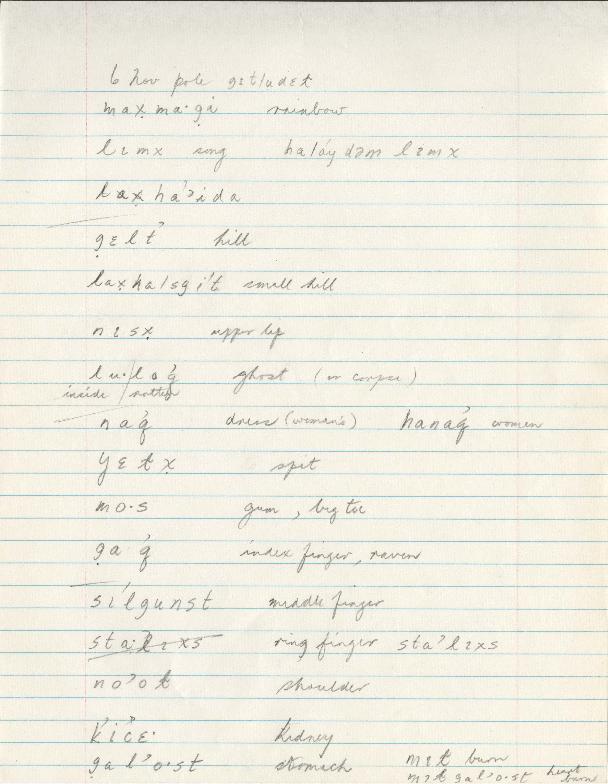 6 hov pole gɛt/udɛt
max̣ ma·g̣á rainbow
lɪmx song haláydəm lɪmx
lax̣ha'ʔida
g̣ɛlt̓ hill
lax̣halsgi't small hill
nɪsx̣ upper lip
lu·loq̓ ghost (or corpse)
inside / rotten
naq̓ dress (woman's) hanaq̓ women
yɛtx̣ spit
mo·s gum, big toe
g̣a·q̓ index finger, raven
sílgunst middle finger
sta·lɪxs ring finger staʔlɪxs
noʔot shoulder
k̓íc̓ɛ· kidney
g̣alʔo·st stomach mɪt burn
mɪt g̣alʔo·st heart burn